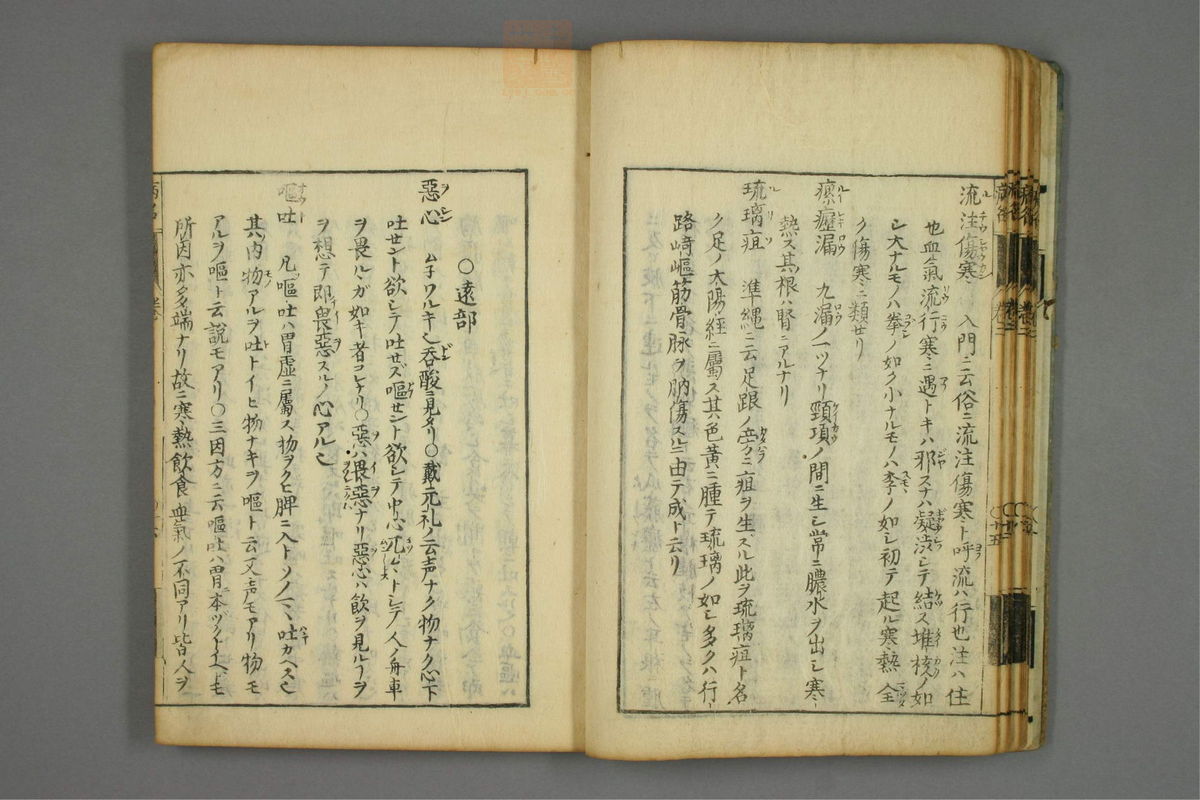 流注傷寒 入門ニ云俗ニ流注傷寒ト呼流ハ行也注ハ住
也血氣流行寒ニ遇トキハ邪スナハ凝渋シテ結ス堆核如
シ大ナルモノハ拳ノ如ク小ナルモノハ李ノ如シ初テ起ル寒熱全
ク傷寒ニ類せリ
瘰癧漏 九漏ノ一ツナリ頸項ノ間ニ生シ常ニ膿水ヲ出シ寒
熱ス其根ハ腎ニアルナリ
琉璃疽 準縄ニ云足跟ノ旁ニ疽ヲ生スル此ヲ琉璃疽ト名
ク足ノ太陽經ニ屬ス其色黄ニ腫テ琉璃ノ如シ多クハ行
路﨑嶇筋骨脉ヲ肭傷スルニ由テ成ト云リ
○遠部
惡心 ムネワルキ也呑酸ニ見タリ○戴元礼ノ云声ナク物ナク心下
吐せント欲シテ吐せズ嘔せント欲シテ中心兀ートシテ人ノ舟車
ヲ畏ルヽガ如キ者コレナリ○惡ハ畏惡ナリ惡心ハ飲ヲ見ルーヲ
ヲ想テ即畏惡スルノ心アル也
嘔吐 凡嘔吐ハ胃虚ニ屬ス物ヲクヒ脾ニ入トソノマヽ吐カヘス也
其内物アルヲ吐トイヒ物ナキヲ嘔ト云又声モアリ物モ
アルヲ嘔ト云説モアリ○三因方ニ云嘔吐ハ胃ニ本ツクトイヘトモ
所因亦多端ナリ故ニ寒熱飲食血氣ノ不同アリ皆人ヲ